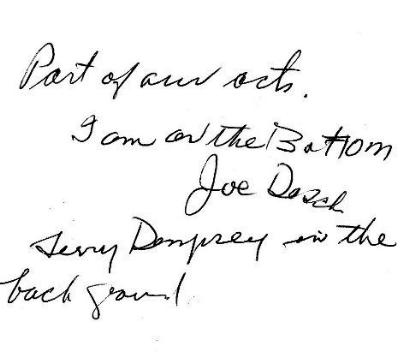 Part of our acts.
I am on the Bottom
Joe Dosch
Jerry Dempsey in the
back ground